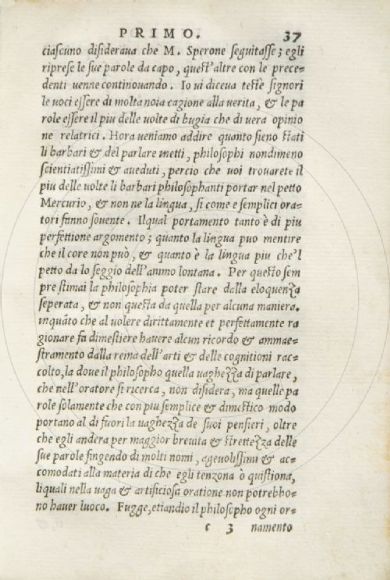 PRIMO. 37
ciascuno disideraua che M. Sperone seguitasse; egli
riprese le sue parole da capo, quest'altre con le prece-
denti uenne continouando. Io vi diceua teste signori
le uoci essere di molta noia cagione alla verita, & le pa
role essere il piu delle uolte di bugia che di uera opinio
ne relatrici. Hora ueniamo addire quanto sieno stati
li barbari & del parlare inetti, philosophi nondimeno
scientiatissimi & aueduti, percio che uoi trouarete il
piu delle uolte li barbari philosophanti portar nel petto
Mercurio, & non ne la lingua, si come e semplici ora-
tori fanno souente. Il qual portamento tanto è di piu
perfettione argomento; quanto la lingua puo mentire
che il core non può, & quanto è la lingua piu che'l
petto da lo seggio dell'animo lontana. Per questo sem
pre stimai la philosophia poter stare dalla eloquenza
seperata, & non questa da quella per alcuna maniera.
inquāto che al uolere dirittamente et perfettamente ra
gionare fa dimestiere hauere alcun ricordo & ammae-
stramento dalla reina dell'arti & delle cognitioni rac-
colto, la doue il philosopho quella uaghezza di parlare,
che nell'oratore si ricerca, non disidera, ma quelle pa
role solamente che con piu semplice & dimestico modo
portano al di fuori la uaghezza de suoi pensieri, oltre
che egli andera per maggior breuita & strettezza delle
sue parole fingendo di molti nomi, ageuolissimi & ac-
comodati alla materia di che egli tenzona ò quistiona,
li quali nella uaga & artificiosa oratione non potrebbo-
no hauer luoco. Fugge, etiandio il philosopho ogni or-
c 3 namento